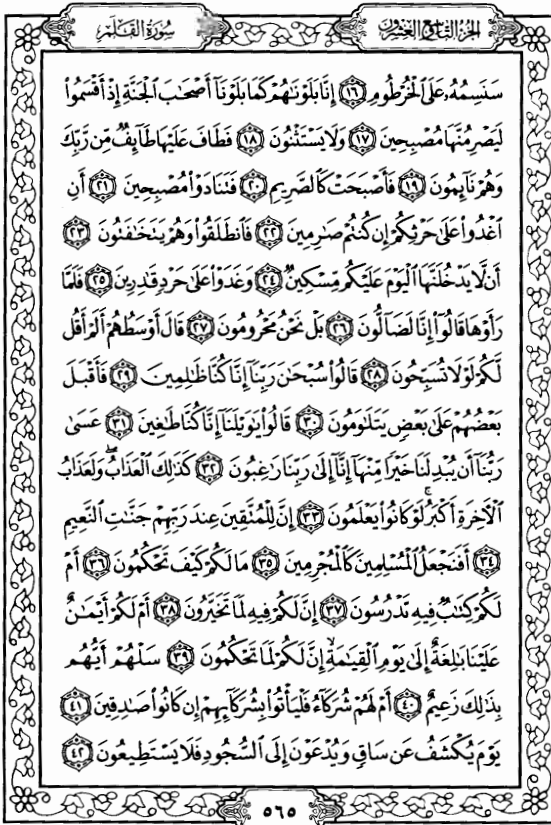 الجزء التاسع والعشرون
سورة القلم
سَنَسِمُهُۥ عَلَى ٱلْخُرْطُومِ ١٦ إِنَّا بَلَوْنَٰهُمْ كَمَا بَلَوْنَآ أَصْحَٰبَ ٱلْجَنَّةِ إِذْ أَقْسَمُوا۟
لَيَصْرِمُنَّهَا مُصْبِحِينَ ١٧ وَلَا يَسْتَثْنُونَ ١٨ فَطَافَ عَلَيْهَا طَآئِفٌ مِّن رَّبِّكَ
وَهُمْ نَآئِمُونَ ١٩ فَأَصْبَحَتْ كَٱلصَّرِيمِ ٢٠ فَتَنَادَوْا۟ مُصْبِحِينَ ٢١ أَنِ
ٱغْدُوا۟ عَلَىٰ حَرْثِكُمْ إِن كُنتُمْ صَٰرِمِينَ ٢٢ فَٱنطَلَقُوا۟ وَهُمْ يَتَخَٰفَتُونَ ٢٣
أَن لَّا يَدْخُلَنَّهَا ٱلْيَوْمَ عَلَيْكُم مِّسْكِينٌ ٢٤ وَغَدَوْا۟ عَلَىٰ حَرْدٍ قَٰدِرِينَ ٢٥ فَلَمَّا
رَأَوْهَا قَالُوٓا۟ إِنَّا لَضَآلُّونَ ٢٦ بَلْ نَحْنُ مَحْرُومُونَ ٢٧ قَالَ أَوْسَطُهُمْ أَلَمْ أَقُل
لَّكُمْ لَوْلَا تُسَبِّحُونَ ٢٨ قَالُوا۟ سُبْحَٰنَ رَبِّنَآ إِنَّا كُنَّا ظَٰلِمِينَ ٢٩ فَأَقْبَلَ
بَعْضُهُمْ عَلَىٰ بَعْضٍ يَتَلَٰوَمُونَ ٣٠ قَالُوا۟ يَٰوَيْلَنَآ إِنَّا كُنَّا طَٰغِينَ ٣١ عَسَىٰ
رَبُّنَآ أَن يُبْدِلَنَا خَيْرًا مِّنْهَآ إِنَّآ إِلَىٰ رَبِّنَا رَٰغِبُونَ ٣٢ كَذَٰلِكَ ٱلْعَذَابُ ۖ وَلَعَذَابُ
ٱلْأَخِرَةِ أَكْبَرُ ۚ لَوْ كَانُوا۟ يَعْلَمُونَ ٣٣ إِنَّ لِلْمُتَّقِينَ عِندَ رَبِّهِمْ جَنَّٰتِ ٱلنَّعِيمِ
٣٤ أَفَنَجْعَلُ ٱلْمُسْلِمِينَ كَٱلْمُجْرِمِينَ ٣٥ مَا لَكُمْ كَيْفَ تَحْكُمُونَ ٣٦ أَمْ
لَكُمْ كِتَٰبٌ فِيهِ تَدْرُسُونَ ٣٧ إِنَّ لَكُمْ فِيهِ لَمَا تَخَيَّرُونَ ٣٨ أَمْ لَكُمْ أَيْمَٰنٌ
عَلَيْنَا بَٰلِغَةٌ إِلَىٰ يَوْمِ ٱلْقِيَٰمَةِ ۙ إِنَّ لَكُمْ لَمَا تَحْكُمُونَ ٣٩ سَلْهُمْ أَيُّهُم
بِذَٰلِكَ زَعِيمٌ ٤٠ أَمْ لَهُمْ شُرَكَآءُ فَلْيَأْتُوا۟ بِشُرَكَآئِهِمْ إِن كَانُوا۟ صَٰدِقِينَ ٤١
يَوْمَ يُكْشَفُ عَن سَاقٍ وَيُدْعَوْنَ إِلَى ٱلسُّجُودِ فَلَا يَسْتَطِيعُونَ ٤٢
٥٦٥